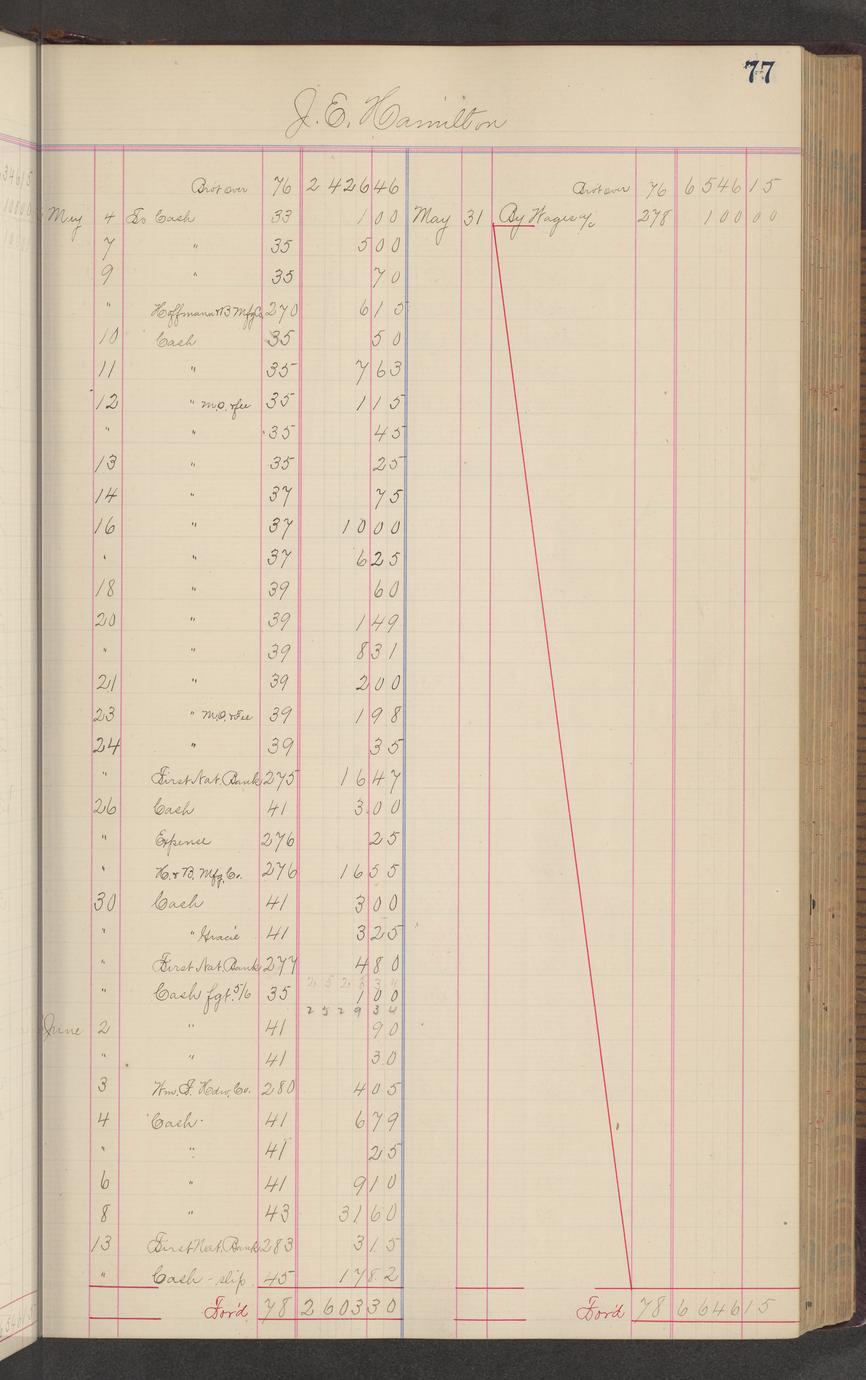 77
J. E. Hamilton
Brot over 76 2 426 46
May 4 To Cash 33 1 00
7 " 35 5 00
9 " 35 70
" Hoffmann & B Mfg Co 270 6 15
10 Cash 35 50
11 " 35 7 63
12 " M.O. & fee 35 1 15
" " 35 45
13 " 35 25
14 " 37 75
16 " 37 10 00
" " 37 6 25
18 " 39 60
20 " 39 1 49
" " 39 8 31
21 " 39 2 00
23 " M.O. & Fee 39 1 98
24 " 39 35
" First Nat. Bank 275 16 47
26 Cash 41 3 00
" Expense 276 25
" H. & B. Mfg. Co. 276 16 55
30 Cash 41 3 00
" " Gracie 41 3 25
" First Nat. Bank 277 4 80
" Cash fgt. 5/6 35 1 00
2 5 2 9 3 4
June 2 " 41 90
" " 41 30
3 Wm. F. Hdw. Co. 280 4 05
4 Cash 41 6 79
" " 41 25
6 " 41 9 10
8 " 43 31 60
13 First Nat. Bank 283 3 15
" Cash - slip 45 17 82
Ford 78 2 603 30
Brot over 76 6 546 15
May 31 By Wages a/c 278 100 00
Ford 78 6 646 15